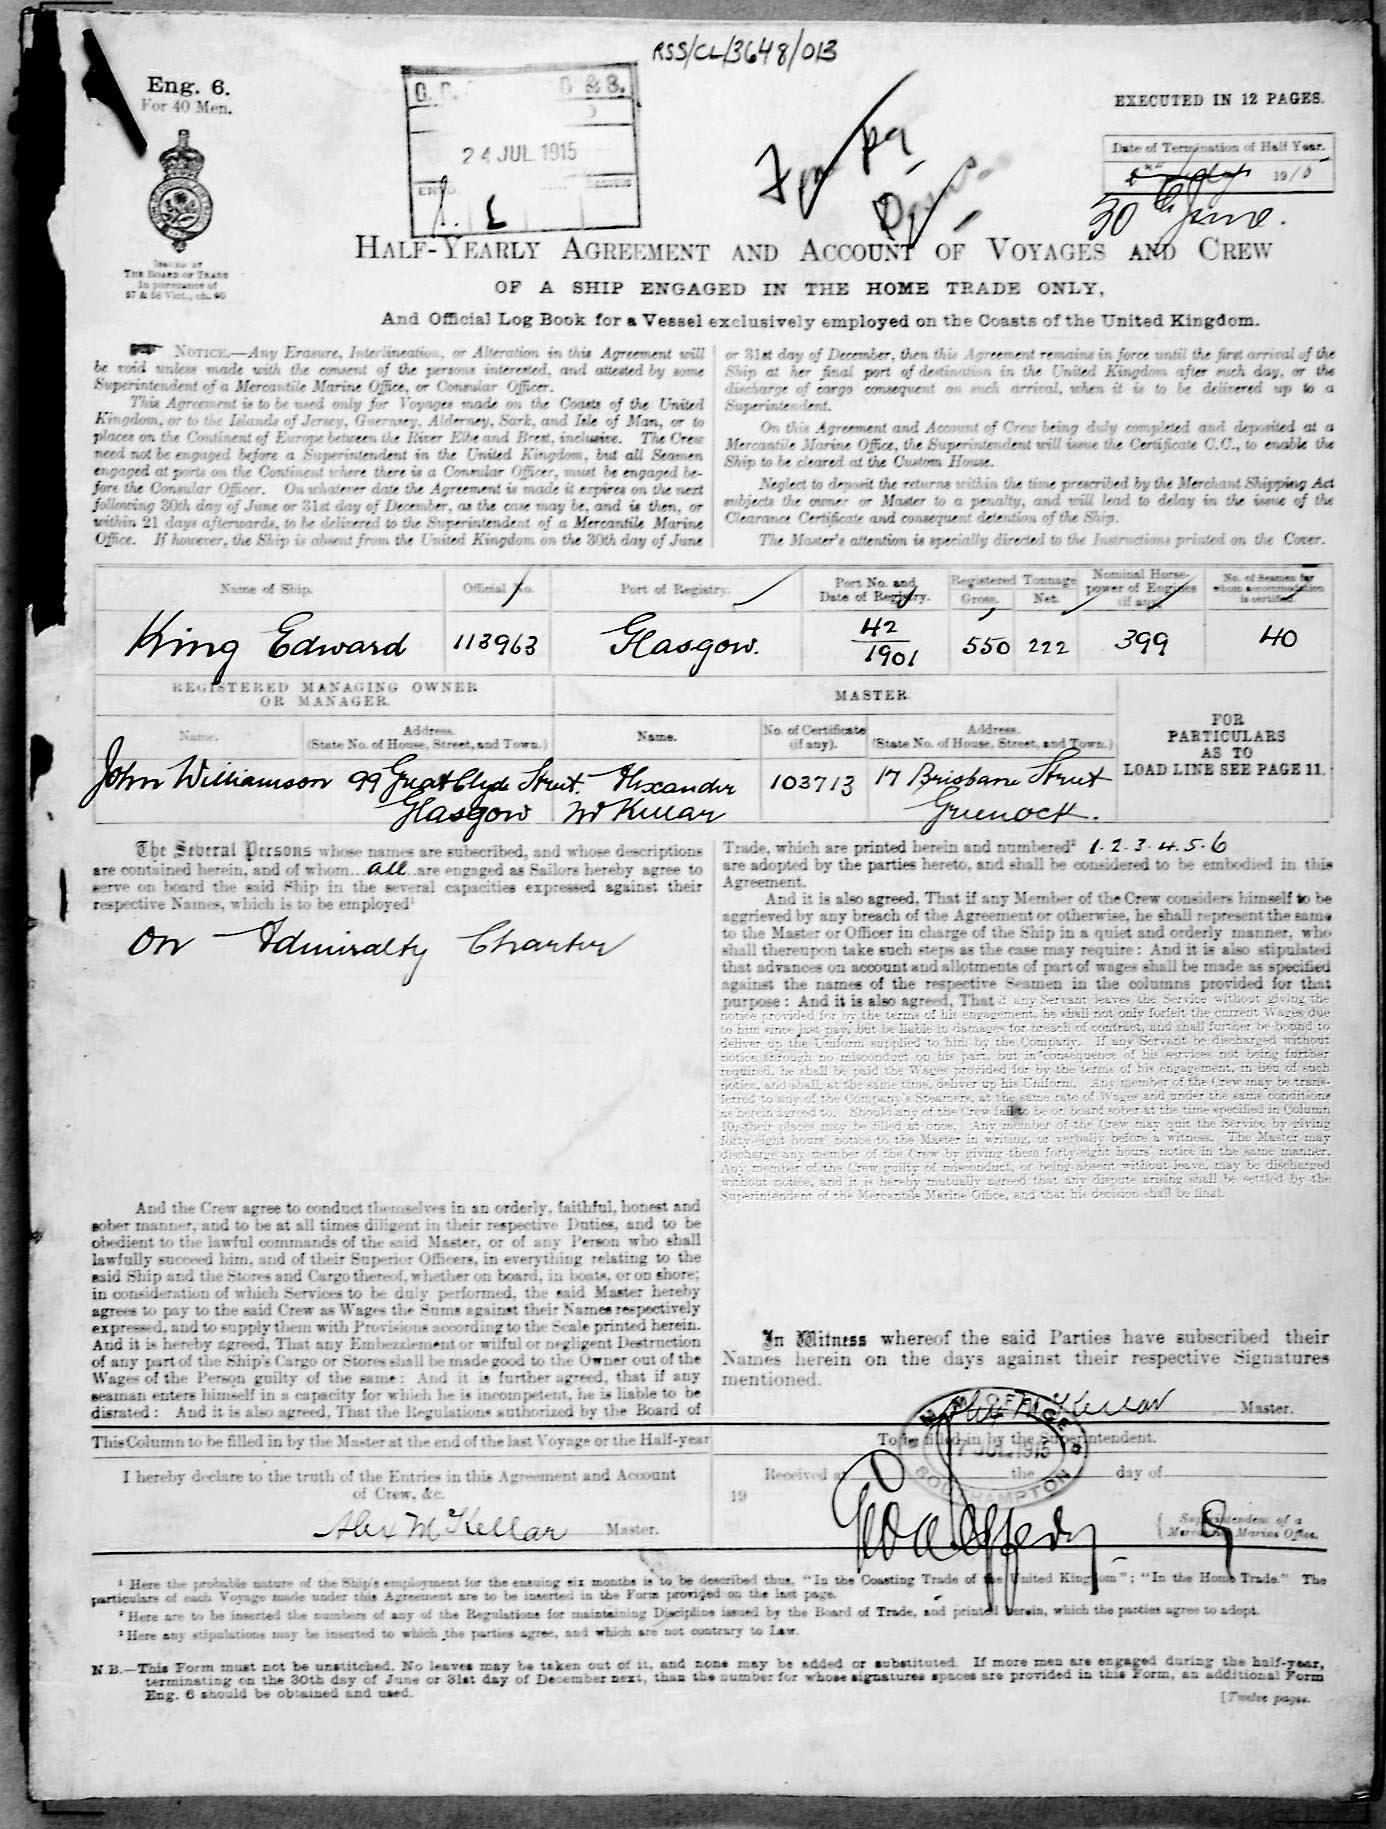 RSS/CL/3648/013
Eng. 6.
For 40 Men.
24 JUL 1915
EXECUTED IN 12 PAGES.
Date of Termination of Half Year.
1915
30th June.
ISSUED BY
THE BOARD OF TRADE
In pursuance of
57 & 58 Vict., ch. 60
HALF-YEARLY AGREEMENT AND ACCOUNT OF VOYAGES AND CREW
OF A SHIP ENGAGED IN THE HOME TRADE ONLY,
And Official Log Book for a Vessel exclusively employed on the Coasts of the United Kingdom.
NOTICE.—Any Erasure, Interlineation, or Alteration in this Agreement will
be void unless made with the consent of the persons interested, and attested by some
Superintendent of a Mercantile Marine Office, or Consular Officer.
This Agreement is to be used only for Voyages made on the Coasts of the United
Kingdom, or to the Islands of Jersey, Guernsey, Alderney, Sark, and Isle of Man, or to
places on the Continent of Europe between the River Elbe and Brest, inclusive. The Crew
need not be engaged before a Superintendent in the United Kingdom, but all Seamen
engaged at ports on the Continent where there is a Consular Officer, must be engaged be-
fore the Consular Officer. On whatever date the Agreement is made it expires on the next
following 30th day of June or 31st day of December, as the case may be, and is then, or
within 21 days afterwards, to be delivered to the Superintendent of a Mercantile Marine
Office. If however, the Ship is absent from the United Kingdom on the 30th day of June
or 31st day of December, then this Agreement remains in force until the first arrival of the
Ship at her final port of destination in the United Kingdom after such day, or the
discharge of cargo consequent on such arrival, when it is to be delivered up to a
Superintendent.
On this Agreement and Account of Crew being duly completed and deposited at a
Mercantile Marine Office, the Superintendent will issue the Certificate C.C., to enable the
Ship to be cleared at the Custom House.
Neglect to deposit the returns within the time prescribed by the Merchant Shipping Act
subjects the owner or Master to a penalty, and will lead to delay in the issue of the
Clearance Certificate and consequent detention of the Ship.
The Master's attention is specially directed to the Instructions printed on the Cover.
Name of Ship. Official No. Port of Registry. Port No. and Date of Registry. Registered Tonnage Gross. Net. Nominal Horse-power of Engines (if any). No. of Seamen for whom accommodation is certified.
King Edward 113963 Glasgow. 42/1901 550 222 399 40
REGISTERED MANAGING OWNER
OR MANAGER.
MASTER.
FOR
PARTICULARS
AS TO
LOAD LINE SEE PAGE 11.
Name. Address. (State No. of House, Street, and Town.) Name. No. of Certificate (if any). Address. (State No. of House, Street, and Town.)
John Williamson 99 Great Clyde Street. Alexander 103713 17 Brisbane Street
Glasgow McKellar Greenock.
The Several Persons whose names are subscribed, and whose descriptions
are contained herein, and of whom all are engaged as Sailors hereby agree to
serve on board the said Ship in the several capacities expressed against their
respective Names, which is to be employed¹
On Admiralty Charter
And the Crew agree to conduct themselves in an orderly, faithful, honest and
sober manner, and to be at all times diligent in their respective Duties, and to be
obedient to the lawful commands of the said Master, or of any Person who shall
lawfully succeed him, and of their Superior Officers, in everything relating to the
said Ship and the Stores and Cargo thereof, whether on board, in boats, or on shore;
in consideration of which Services to be duly performed, the said Master hereby
agrees to pay to the said Crew as Wages the Sums against their Names respectively
expressed, and to supply them with Provisions according to the Scale printed herein.
And it is hereby agreed, That any Embezzlement or wilful or negligent Destruction
of any part of the Ship's Cargo or Stores shall be made good to the Owner out of the
Wages of the Person guilty of the same: And it is further agreed, that if any
seaman enters himself in a capacity for which he is incompetent, he is liable to be
disrated: And it is also agreed, That the Regulations authorized by the Board of
Trade, which are printed herein and numbered² 1.2.3.4.5.6
are adopted by the parties hereto, and shall be considered to be embodied in this
Agreement.
And it is also agreed, That if any Member of the Crew considers himself to be
aggrieved by any breach of the Agreement or otherwise, he shall represent the same
to the Master or Officer in charge of the Ship in a quiet and orderly manner, who
shall thereupon take such steps as the case may require: And it is also stipulated
that advances on account and allotments of part of wages shall be made as specified
against the names of the respective Seamen in the columns provided for that
purpose: And it is also agreed, That if any Servant leaves the Service without giving the
notice provided for by the terms of his engagement, he shall not only forfeit the current Wages due
to him since last pay, but be liable in damages for breach of contract, and shall further be bound to
deliver up the Uniform supplied to him by the Company. If any Servant be discharged without
notice through no misconduct on his part, but in consequence of his services not being further
required, he shall be paid the Wages provided for by the terms of his engagement, in lieu of such
notice, and shall, at the same time, deliver up his Uniform. Any member of the Crew may be trans-
ferred to any of the Company's Steamers, at the same rate of Wages and under the same conditions
as herein agreed to. Should any of the Crew fail to be on board sober at the time specified in Column
10, their places may be filled at once. Any member of the Crew may quit the Service by giving
forty-eight hours' notice to the Master in writing, or verbally before a witness. The Master may
discharge any member of the Crew by giving them forty-eight hours' notice in the same manner.
Any member of the Crew guilty of misconduct, or being absent without leave, may be discharged
without notice, and it is hereby mutually agreed that any dispute arising shall be settled by the
Superintendent of the Mercantile Marine Office, and that his decision shall be final.
In Witness whereof the said Parties have subscribed their
Names herein on the days against their respective Signatures
mentioned.
Alex McKellar Master.
This Column to be filled in by the Master at the end of the last Voyage or the Half-year
To be filled in by the Superintendent.
I hereby declare to the truth of the Entries in this Agreement and Account
of Crew, &c.
Alex McKellar Master.
Received at the day of
19
M.M. OFFICE
JUL 1915
SOUTHAMPTON
Superintendent of a
Mercantile Marine Office.
¹ Here the probable nature of the Ship's employment for the ensuing six months is to be described thus, "In the Coasting Trade of the United Kingdom"; "In the Home Trade." The
particulars of each Voyage made under this Agreement are to be inserted in the Form provided on the last page.
² Here are to be inserted the numbers of any of the Regulations for maintaining Discipline issued by the Board of Trade, and printed herein, which the parties agree to adopt.
³ Here any stipulations may be inserted to which the parties agree, and which are not contrary to Law.
N.B.—This Form must not be unstitched. No leaves may be taken out of it, and none may be added or substituted. If more men are engaged during the half-year,
terminating on the 30th day of June or 31st day of December next, than the number for whose signatures spaces are provided in this Form, an additional Form
Eng. 6 should be obtained and used.
[Twelve pages.